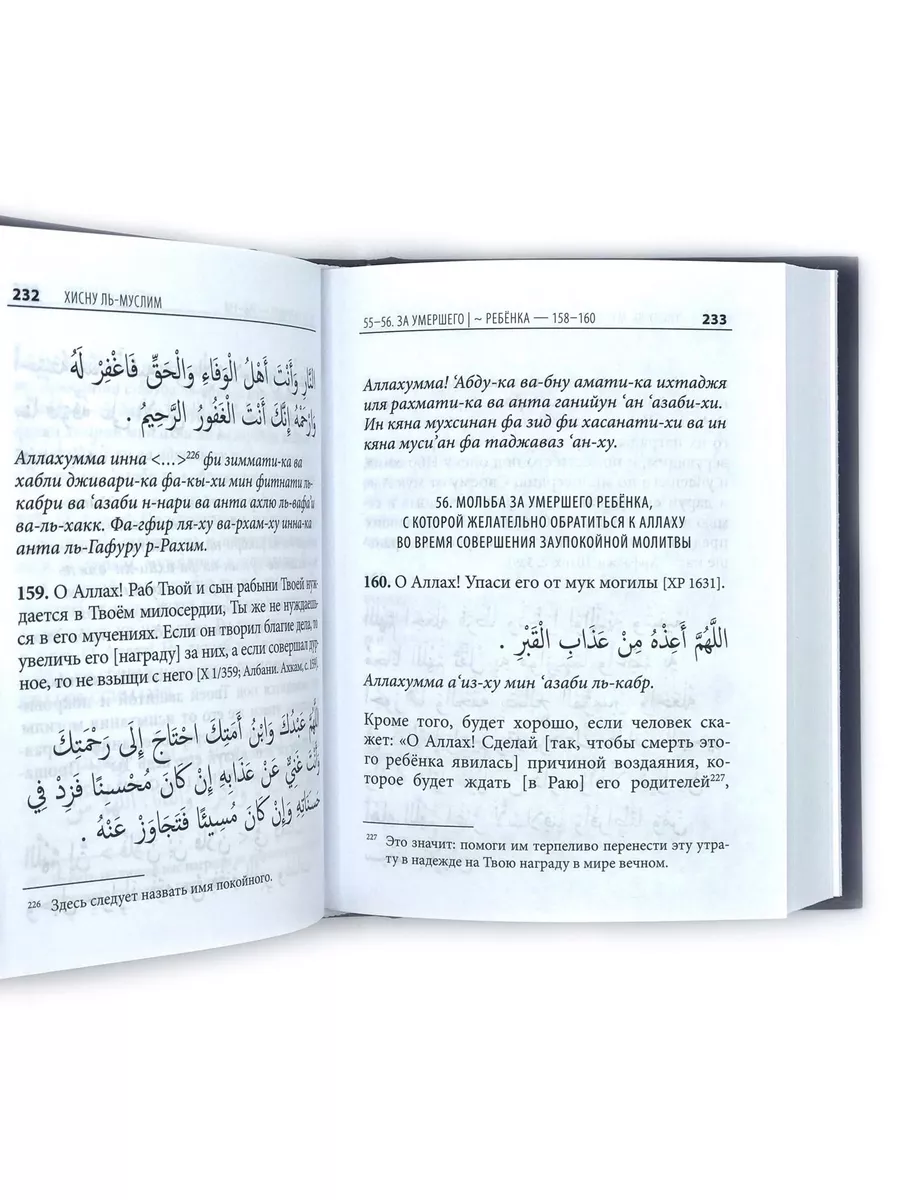 232 ХИСНУ ЛЬ-МУСЛИМ
النَّارِ وَأَنْتَ أَهْلُ الْوَفَاءِ وَالْحَقِّ فَاغْفِرْ لَهُ
وَارْحَمْهُ إِنَّكَ أَنْتَ الْغَفُورُ الرَّحِيمُ .
Аллахумма инна <...>²²⁶ фи зиммати-ка ва
хабли дживари-ка фа-кы-хи мин фитнати ль-
кабри ва ‘азаби н-нари ва анта ахлю ль-вафа’и
ва-ль-хакк. Фа-гфир ля-ху ва-рхам-ху инна-ка
анта ль-Гафуру р-Рахим.
159. О Аллах! Раб Твой и сын рабыни Твоей нуж-
дается в Твоём милосердии, Ты же не нуждаешь-
ся в его мучениях. Если он творил благие дела, то
увеличь его [награду] за них, а если совершал дур-
ное, то не взыщи с него [Х 1/359; Албани. Ахкам, с. 159].
اللَّهُمَّ عَبْدُكَ وَابْنُ أَمَتِكَ احْتَاجَ إِلَى رَحْمَتِكَ
وَأَنْتَ غَنِيٌّ عَنْ عَذَابِهِ إِنْ كَانَ مُحْسِنًا فَزِدْ فِي
حَسَنَاتِهِ وَإِنْ كَانَ مُسِيئًا فَتَجَاوَزْ عَنْهُ .
226 Здесь следует назвать имя покойного.
55–56. ЗА УМЕРШЕГО | ~ РЕБЁНКА — 158–160 233
Аллахумма! ‘Абду-ка ва-бну амати-ка ихтаджя
иля рахмати-ка ва анта ганийун ‘ан ‘азаби-хи.
Ин кяна мухсинан фа зид фи хасанати-хи ва ин
кяна муси’ан фа таджаваз ‘ан-ху.
56. МОЛЬБА ЗА УМЕРШЕГО РЕБЁНКА,
С КОТОРОЙ ЖЕЛАТЕЛЬНО ОБРАТИТЬСЯ К АЛЛАХУ
ВО ВРЕМЯ СОВЕРШЕНИЯ ЗАУПОКОЙНОЙ МОЛИТВЫ
160. О Аллах! Упаси его от мук могилы [ХР 1631].
اللَّهُمَّ أَعِذْهُ مِنْ عَذَابِ الْقَبْرِ .
Аллахумма а‘из-ху мин ‘азаби ль-кабр.
Кроме того, будет хорошо, если человек ска-
жет: «О Аллах! Сделай [так, чтобы смерть это-
го ребёнка явилась] причиной воздаяния, ко-
торое будет ждать [в Раю] его родителей²²⁷,
227 Это значит: помоги им терпеливо перенести эту утра-
ту в надежде на Твою награду в мире вечном.